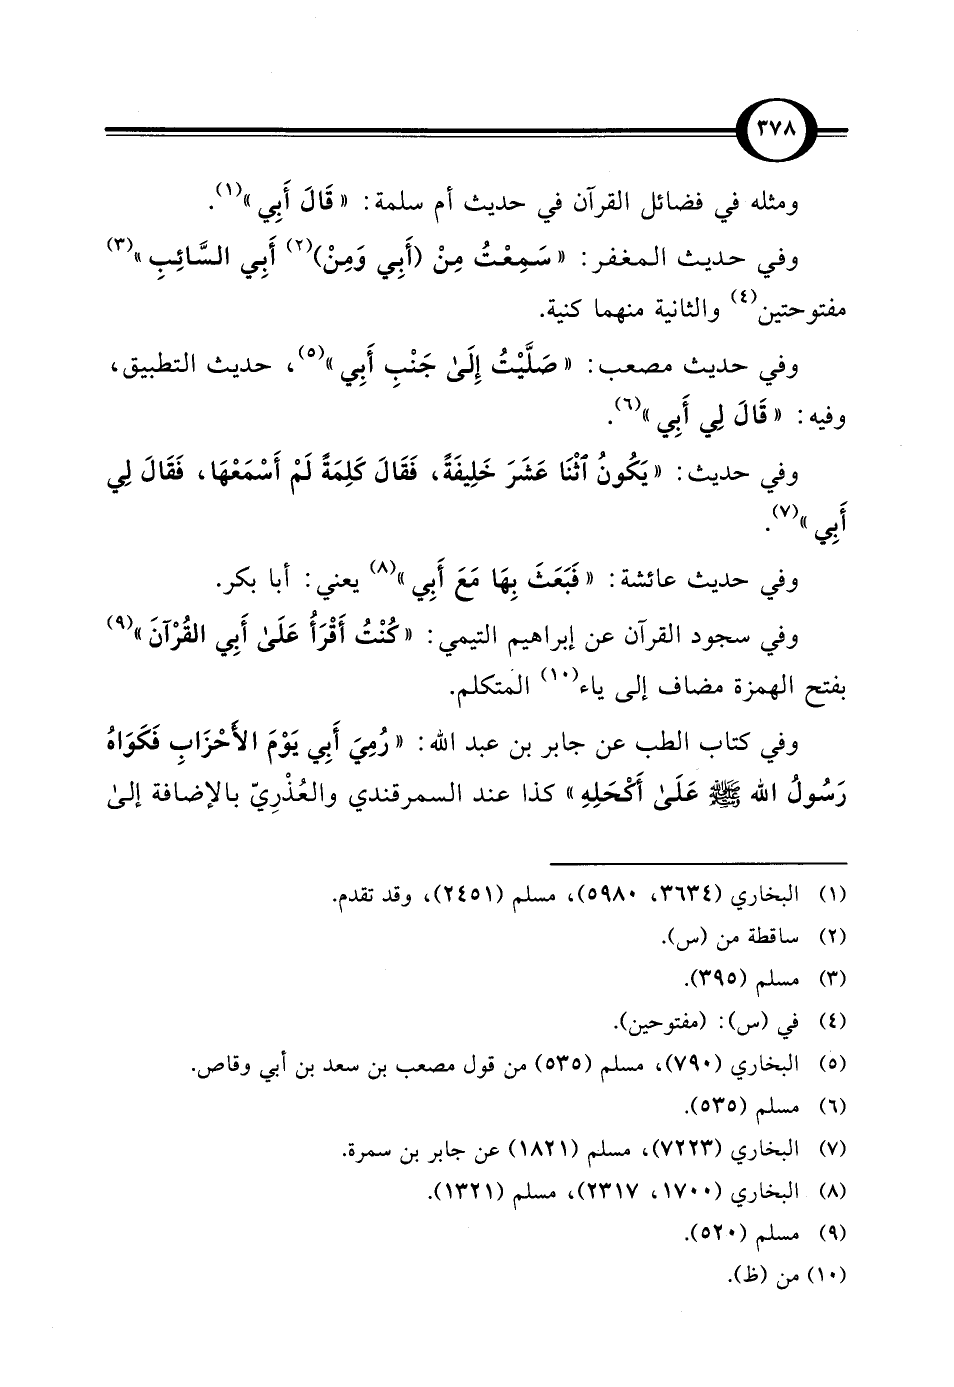 ٣٧٨
ومثله في فضائل القرآن في حديث أم سلمة: «قَالَ أَبِي»(١).
وفي حديث المغفر: «سَمِعْتُ مِنْ (أَبِي وَمِنْ)(٢) أَبِي السَّائِبِ»(٣)
مفتوحتين(٤) والثانية منهما كنية.
وفي حديث مصعب: «صَلَّيْتُ إِلَىٰ جَنْبِ أَبِي»(٥)، حديث التطبيق،
وفيه: «قَالَ لِي أَبِي»(٦).
وفي حديث: «يَكُونُ ٱثْنَا عَشَرَ خَلِيفَةً، فَقَالَ كَلِمَةً لَمْ أَسْمَعْهَا، فَقَالَ لِي
أَبِي»(٧).
وفي حديث عائشة: «فَبَعَثَ بِهَا مَعَ أَبِي»(٨) يعني: أبا بكر.
وفي سجود القرآن عن إبراهيم التيمي: «كُنْتُ أَقْرَأُ عَلَىٰ أَبِي القُرْآنَ»(٩)
بفتح الهمزة مضاف إلى ياء(١٠) المتكلم.
وفي كتاب الطب عن جابر بن عبد الله: «رُمِيَ أَبِي يَوْمَ الأَحْزَابِ فَكَوَاهُ
رَسُولُ الله ﷺ عَلَىٰ أَكْحَلِهِ» كذا عند السمرقندي والعُذْرِيّ بالإضافة إلىٰ
(١) البخاري (٣٦٣٤، ٥٩٨٠)، مسلم (٢٤٥١)، وقد تقدم.
(٢) ساقطة من (س).
(٣) مسلم (٣٩٥).
(٤) في (س): (مفتوحين).
(٥) البخاري (٧٩٠)، مسلم (٥٣٥) من قول مصعب بن سعد بن أبي وقاص.
(٦) مسلم (٥٣٥).
(٧) البخاري (٧٢٢٣)، مسلم (١٨٢١) عن جابر بن سمرة.
(٨) البخاري (١٧٠٠، ٢٣١٧)، مسلم (١٣٢١).
(٩) مسلم (٥٢٠).
(١٠) من (ظ).